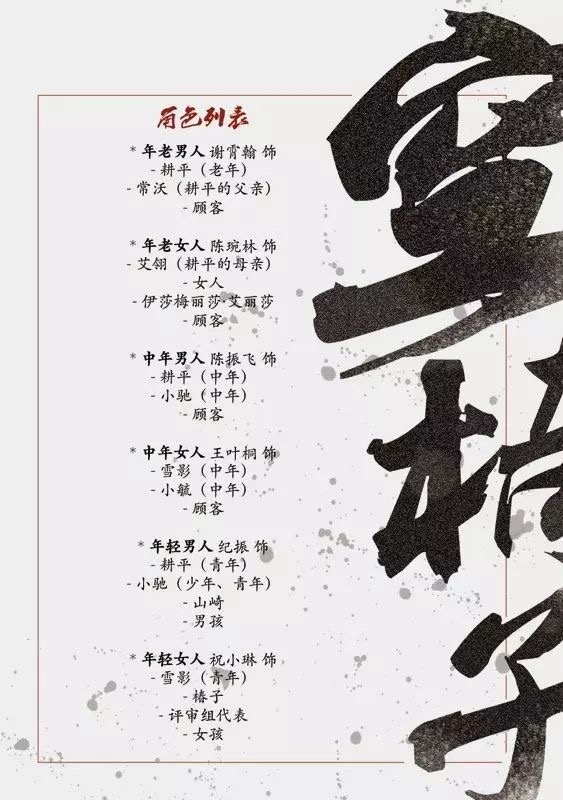 角色列表
* 年老男人 谢霄翰 饰
- 耕平（老年）
- 常沃（耕平的父亲）
- 顾客
* 年老女人 陈琬林 饰
- 艾翎（耕平的母亲）
- 女人
- 伊莎梅丽莎·艾丽莎
- 顾客
* 中年男人 陈振飞 饰
- 耕平（中年）
- 小驰（中年）
- 顾客
* 中年女人 王叶桐 饰
- 雪影（中年）
- 小毓（中年）
- 顾客
* 年轻男人 纪振 饰
- 耕平（青年）
- 小驰（少年、青年）
- 山崎
- 男孩
* 年轻女人 祝小琳 饰
- 雪影（青年）
- 椿子
- 评审组代表
- 女孩
子